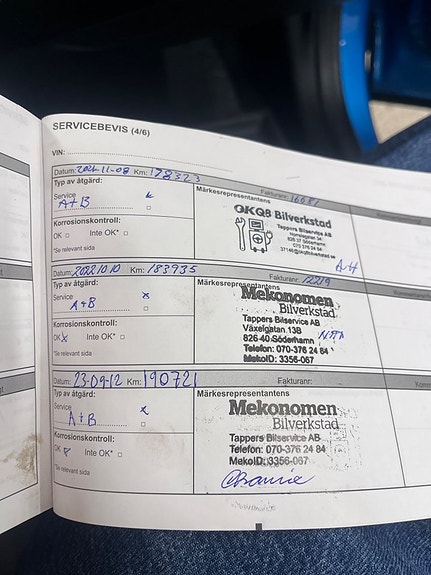 SERVICEBEVIS (4/6)
VIN:
Datum: 2021-11-08 Km: 178323 Fakturanr: 16081
Typ av åtgärd: Märkesrepresentantens
Service x
A+B
OKQ8 Bilverkstad
Tappers Bilservice AB
826 37 Söderhamn
070 376 24 84
Korrosionskontroll:
OK Inte OK*
*Se relevant sida
Datum: 2022.10.10 Km: 183935 Fakturanr: 12219
Typ av åtgärd: Märkesrepresentantens
Service x
A+B
Mekonomen
Bilverkstad
Tappers Bilservice AB
Växelgatan 13B
826 40 Söderhamn
Telefon: 070-376 24 84
MekoID: 3356-067
Korrosionskontroll:
OK x Inte OK*
*Se relevant sida
Datum: 23-09-12 Km: 190721 Fakturanr:
Typ av åtgärd: Märkesrepresentantens
Service x
A+B
Mekonomen
Bilverkstad
Tappers Bilservice AB
Telefon: 070-376 24 84
MekoID: 3356-067
Korrosionskontroll:
OK Inte OK*
*Se relevant sida